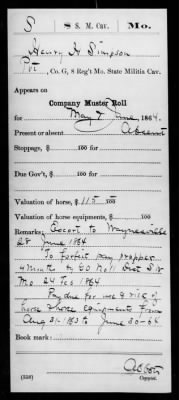 S | 8 S. M. Cav. | Mo.
Henry H Simpson
Pvt, Co. G, 8 Reg't Mo. State Militia Cav.
Appears on
Company Muster Roll
for May & June, 1864.
Present or absent Absent
Stoppage, $ 100 for
Due Gov't, $ 100 for
Valuation of horse, $ 115 100
Valuation of horse equipments, $ 100
Remarks: Escort to Waynesville
28 June 1864
To forfeit pay proper
4 Month by
Mo 24 Feb 1864
Pay due for use & risk of
horse & horse equipments from
Aug 31-1863 to June 30-64
Book mark:
Abbott
(358) Copyist.